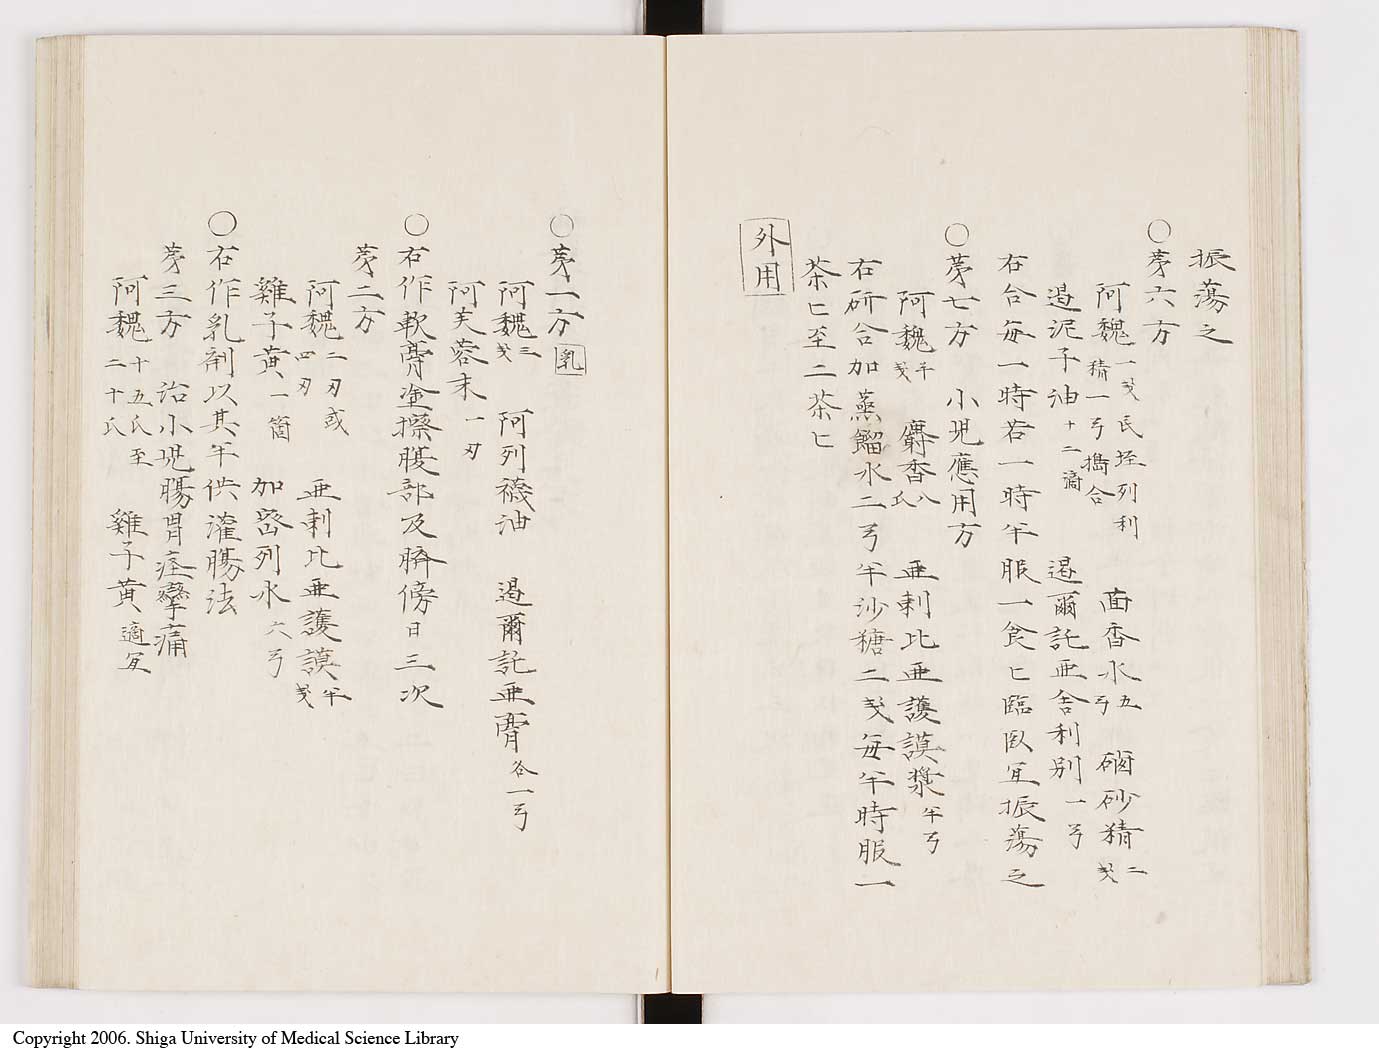 振蕩之
○第六方
阿魏一戔氏垤列利精一弓擣合 茴香水五弓 硇砂精二戔
遏泥子油十二滴 遏爾託亜舎利別一弓
右合毎一時若一時半服一食匕臨臥宜振蕩之
○第七方 小児應用方
阿魏半戔 麝香八氏 亜剌比亜護謨漿半弓
右研合加蒸餾水二弓半沙糖二戔毎半時服一
茶匕至二茶匕
外用
○第一方 乳
阿魏三戔 阿列襪油 遏爾託亜膏各一弓
阿芙蓉末一刃
○右作軟膏塗擦腹部及臍傍日三次
第二方
阿魏二刃或四刃 亜剌比亜護謨半戔
雞子黄一箇 加密列水六弓
○右作乳剤以其半供灌腸法
第三方 治小児腸胃痙攣痛
阿魏十五氏至二十氏 雞子黄適宜
Copyright 2006. Shiga University of Medical Science Library